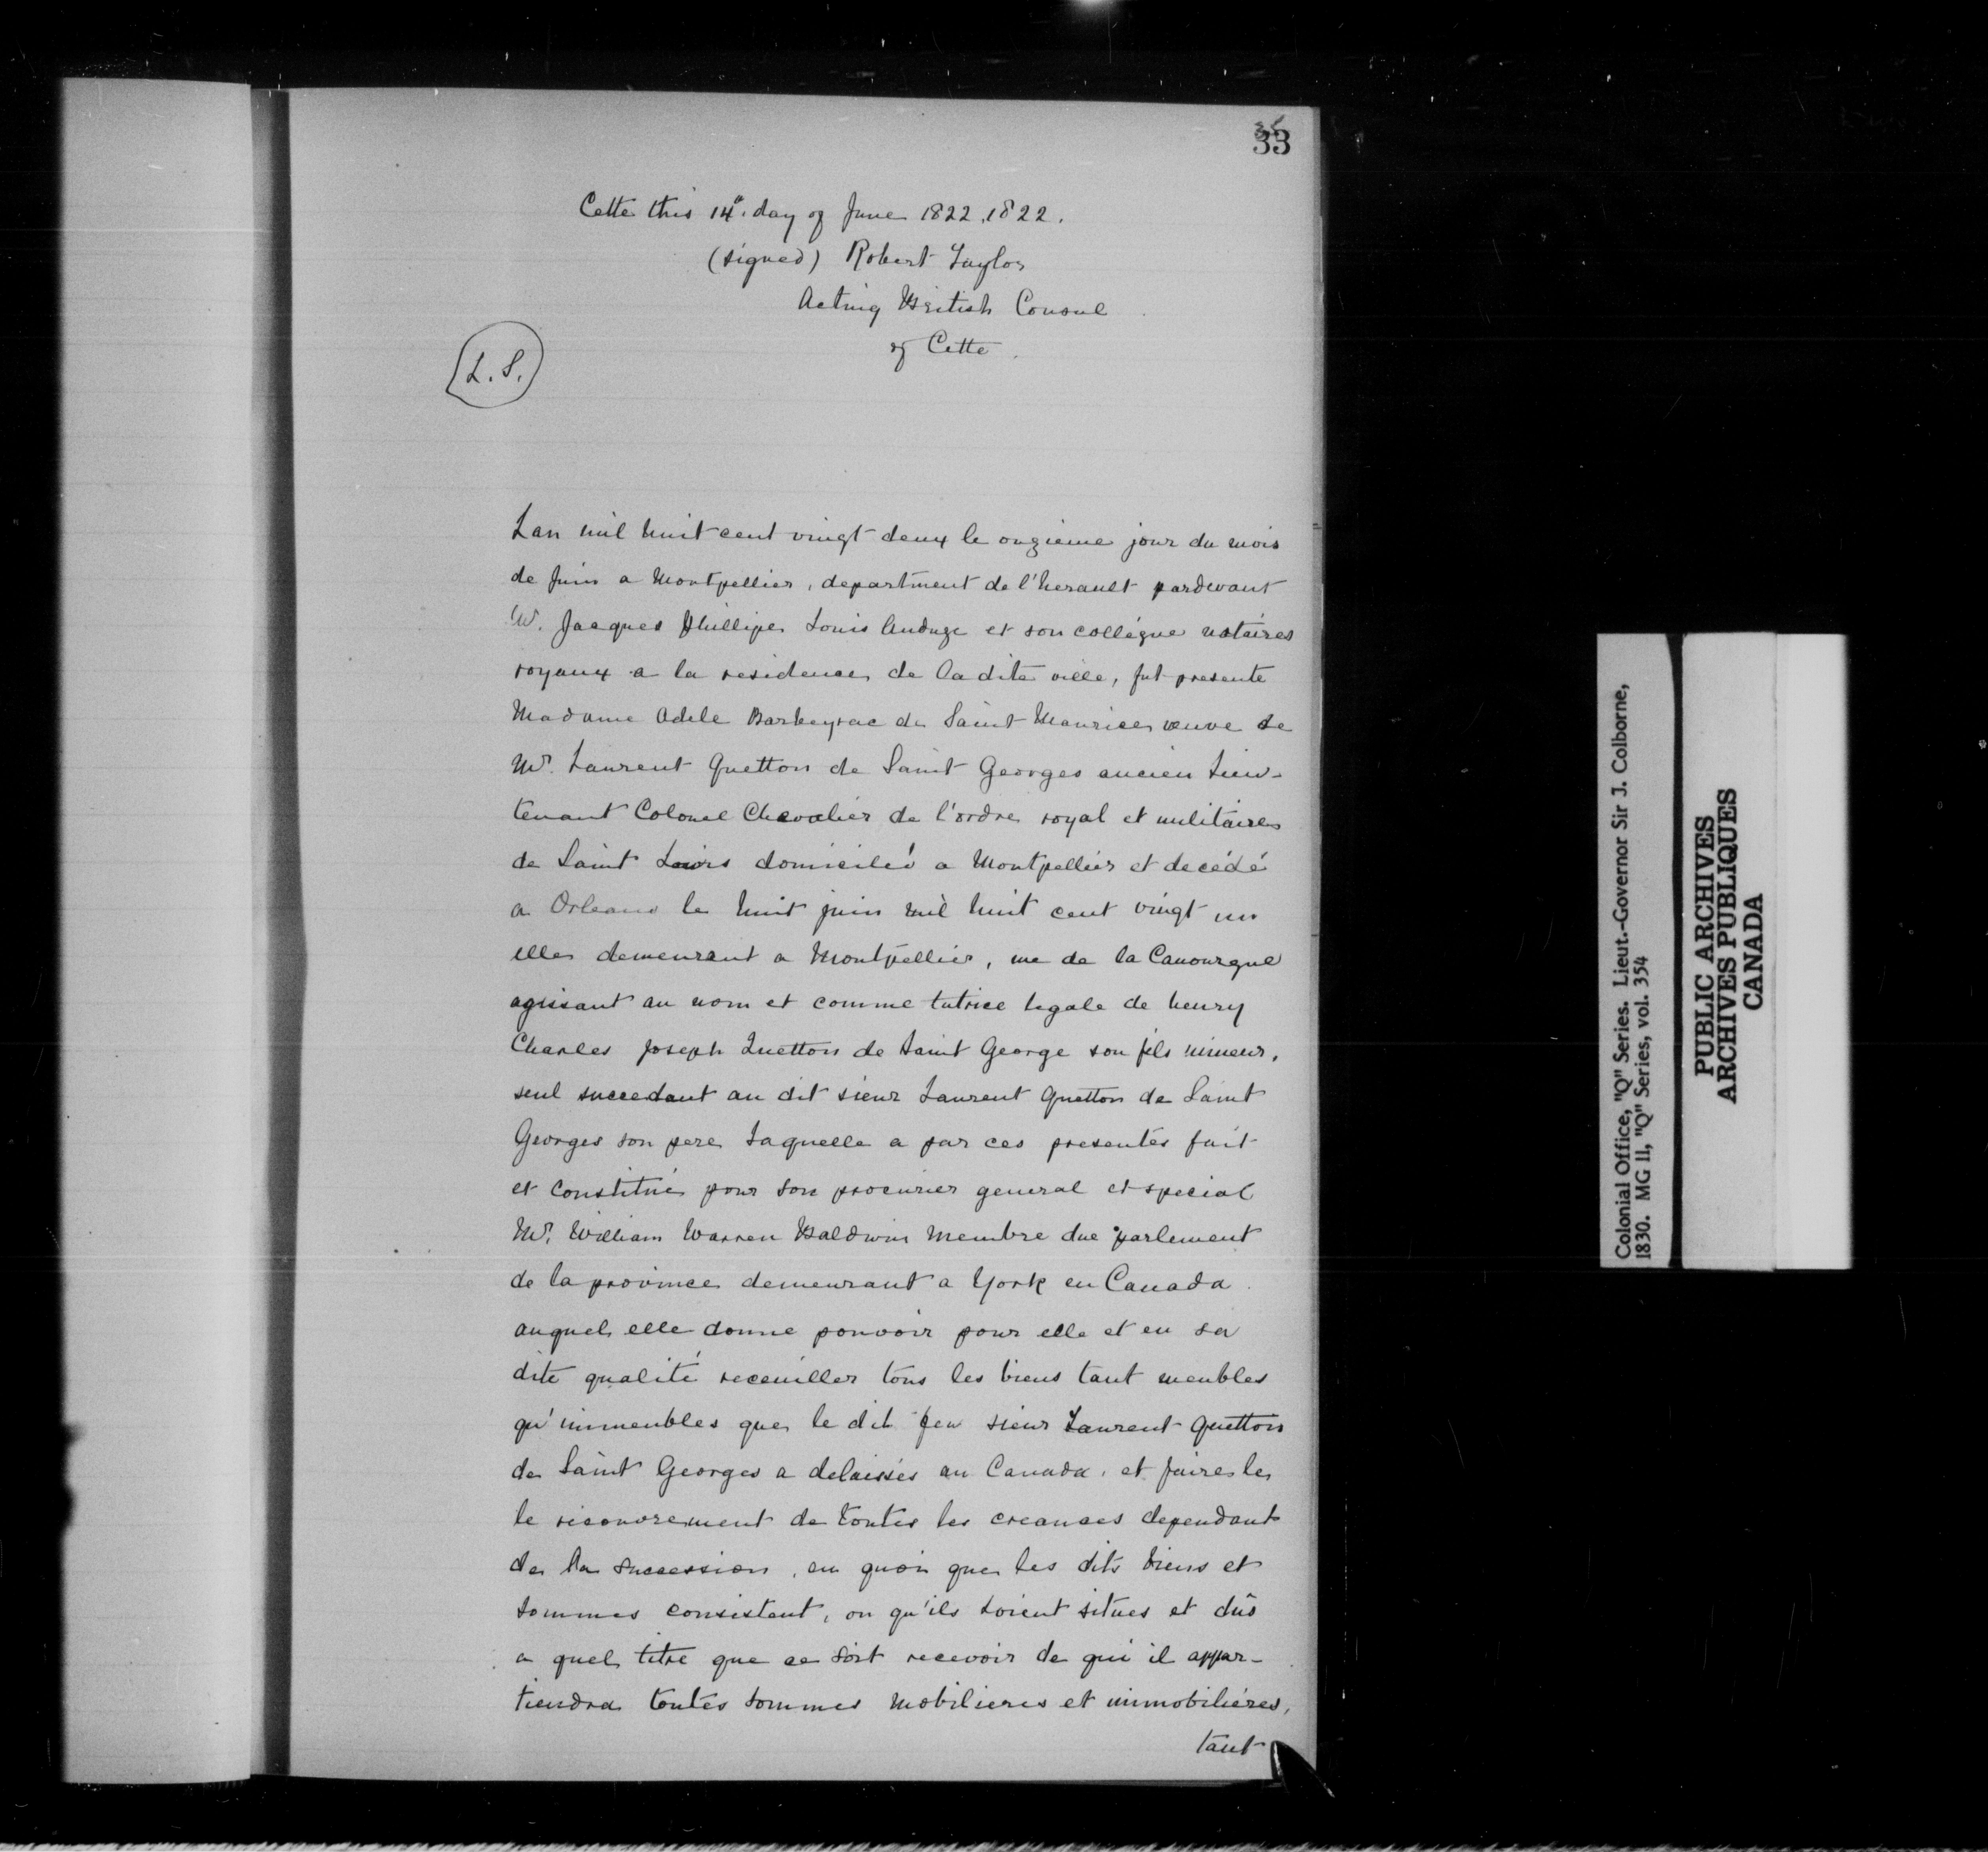 35
33
Cette this 14th day of June 1822, 1822.
(signed) Robert Taylor
Acting British Consul
of Cette.
L. S.
Lan mil huit cent vingt deux le onzieme jour du mois
de Juin a Montpellier, department de l'herault pardevant
Mr. Jacques Phillipe Louis Anduze et son collégue notaires
royaux a la residence de la dite ville, fut presente
Madame Adele Barbeyrac de Saint Maurice veuve de
Mr. Laurent Quetton de Saint Georges ancien Lieu-
tenant Colonel Chevalier de l'ordre royal et militaire
de Saint Louis domicilié a Montpellier et decédé
a Orleans le huit juin mil huit cent vingt un
elle demeurant a Montpellier, rue de la Canourgue
agissant au nom et comme tutrice legale de henry
Charles Joseph Quetton de Saint George son fils mineur,
seul succedant au dit sieur Laurent Quetton de Saint
Georges son pere Laquelle a par ces presentés fait
et Constitué pour son procurier general et special
Mr. William Warren Baldwin Membre due parlement
de la province demeurant a York en Canada.
auquel elle donne pouvoir pour elle et en sa
dite qualité receuiller tous les biens tant meubles
qu'immeubles que le dit feu sieur Laurent Quetton
de Saint Georges a delaissés au Canada, et faire les
le recouvrement de toutes les creances dependant
de la succession, en quoi que les dits biens et
sommes consistent, ou qu'ils soient situes et dûs
a quel titre que ce soit recevoir de qui il appar-
tiendra toutes sommes mobilieres et immobiliéres,
tant
Colonial Office, "Q" Series. Lieut.-Governor Sir J. Colborne,
1830. MG 11, "Q" Series, vol. 354
PUBLIC ARCHIVES
ARCHIVES PUBLIQUES
CANADA